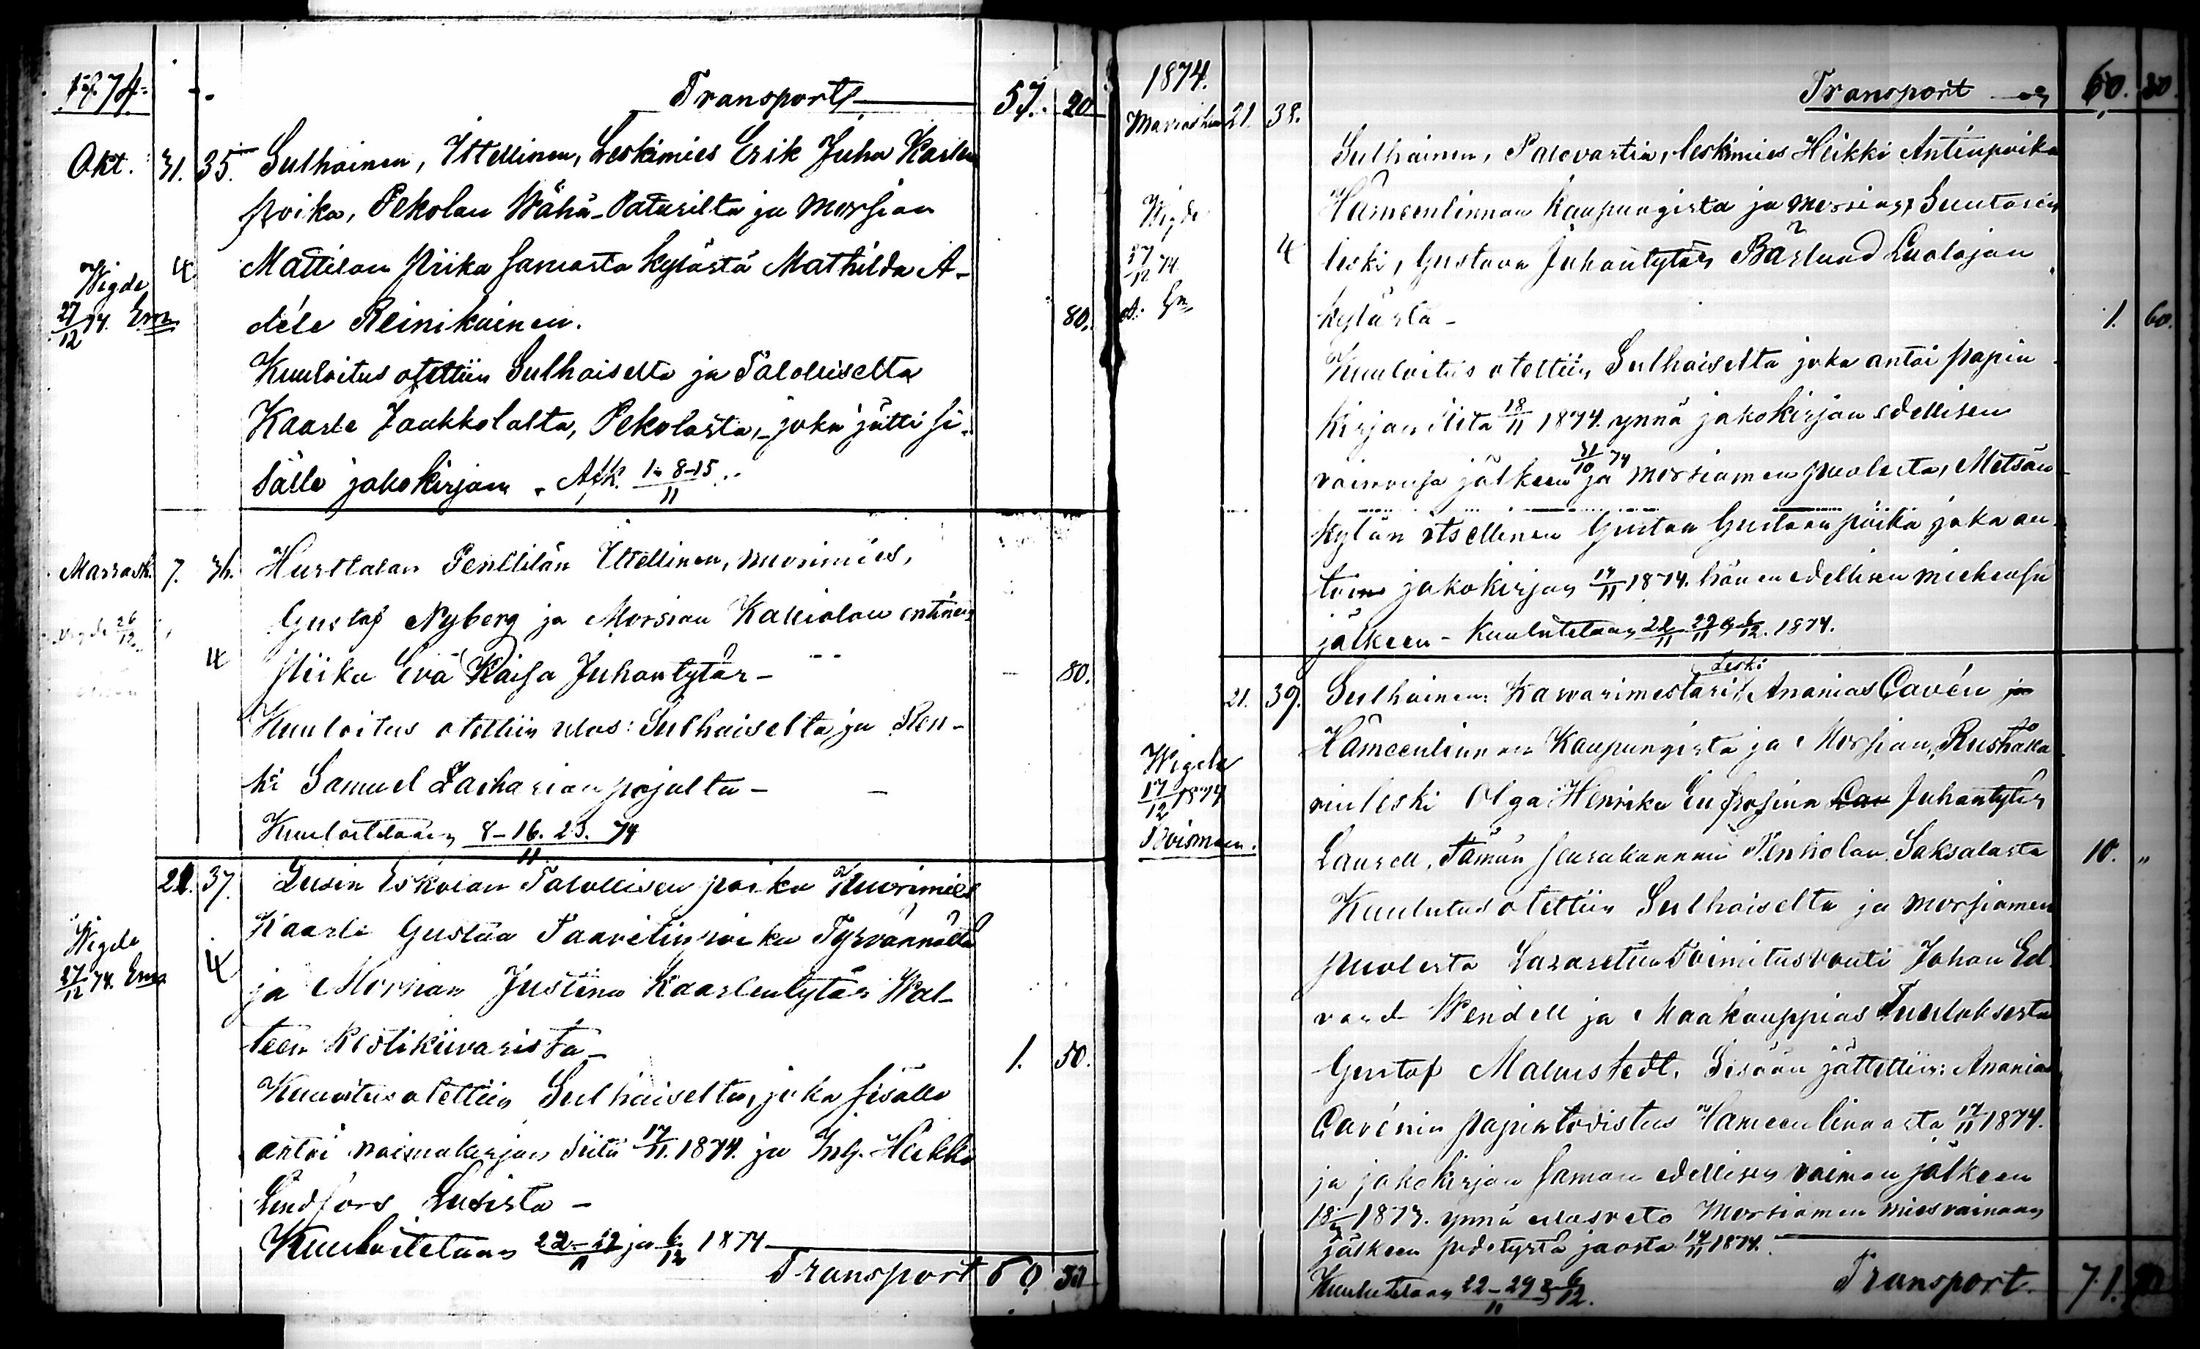 1874.
Transport 57. 20
Okt. 31. 35. Sulhainen, Ittellinen, Leskimies Erik Juha Karlen
poika, Pekolan Wähä-Patarilta ja morsian
Mattilan piika samasta kylästä Mathilda A-
Wigde 4
27/12 74. Em
déle Reinikainen. 80.
Kuuloitus otettiin Sulhaiselta ja Talolliselta
Kaarle Jaakkolalta, Pekolasta, joka jätti si-
sälle jakokirjan. Afk. 1-8-15/11
Marrask. 7. 36. Hurttalan Penttilän Ittellinen, nuorimies,
Wigde 26/12
Gustaf Nyberg ja Morsian Kalliolan entinen
4 piika Eva Kaisa Juhantytär - 80.
Kuuloitus otettiin ulos: Sulhaiselta ja Ren-
ki Samuel Zacharian pojalta -
Kuuloitetaan 8-16. 23. 74
11
21. 37. Lusin Eskolan Talollisen poika Nuorimies
Kaarle Gustaa Taavetinpoika Tyrvännöltä
Wigde 4
27/12 74. Em
ja Morsian Justina Kaarlentytär Wal-
teen Kestikiivarista - 1. 50.
Kuuloitus otettiin Sulhaiselta, joka sisälle
antoi naimakirjan siitä 17/11. 1874. ja Inh. Heikki
Lindfors Lusista -
Kuuloitetaan 22-29/11 ja 6/12 1874
Transport 60 50
1874.
Transport 60. 50.
Marraskuu 21. 38.
Sulhainen, Palovartia, leskimies Heikki Antinpoika
Hämeenlinnan Kaupungista ja morsian, Suutarin
Wigde 4
27/12 74.
leski, Gustava Juhantytär Bärlund Luolajan
kylästä - 1. 60.
Kuuloitus otettiin Sulhaiselta joka antoi papin
kirjan siitä 18/11 1874. ynnä jakokirjan edellisen
vaimonsa jälkeen 31/10 74 ja morsiamen puolesta, Metsän-
kylän itsellinen Gustaa Gustaan poika joka an-
toi jakokirjan 17/11 1874. hänen edellisen miehensä
jälkeen - Kuulutetaan 22/11 29/11 & 6/12. 1874.
21. 39. Sulhainen: Karvarimestari, Leski Ananias Cavén ja
Hämeenlinnan Kaupungista ja Morsian, Rusthåka
Wigde
17/12 1874
Boisman.
rinleski Olga Henrika Eufrosina Cav Juhantytär
Laurell, Tämän seurakunnan Penholan Saksalasta 10. „
Kuulutus otettiin Sulhaiselta ja morsiamen
puolesta Lasaretin Toimitusvouti Johan Ed-
vard Wendell ja Maakauppias Tuuloksesta
Gustaf Malmstedt. Sisään jätettiin: Ananias
Cavénin papintodistus Hämeenlinnasta 17/11 1874.
ja jakokirjan saman edellisen vaimon jälkeen
1873. ynnä ulosveto Morsiamen miesvainaan
jälkeen pidetystä jaosta 17/11 1874.
Kuulutetaan 22-29/11 & 6/12.
Transport. 71.